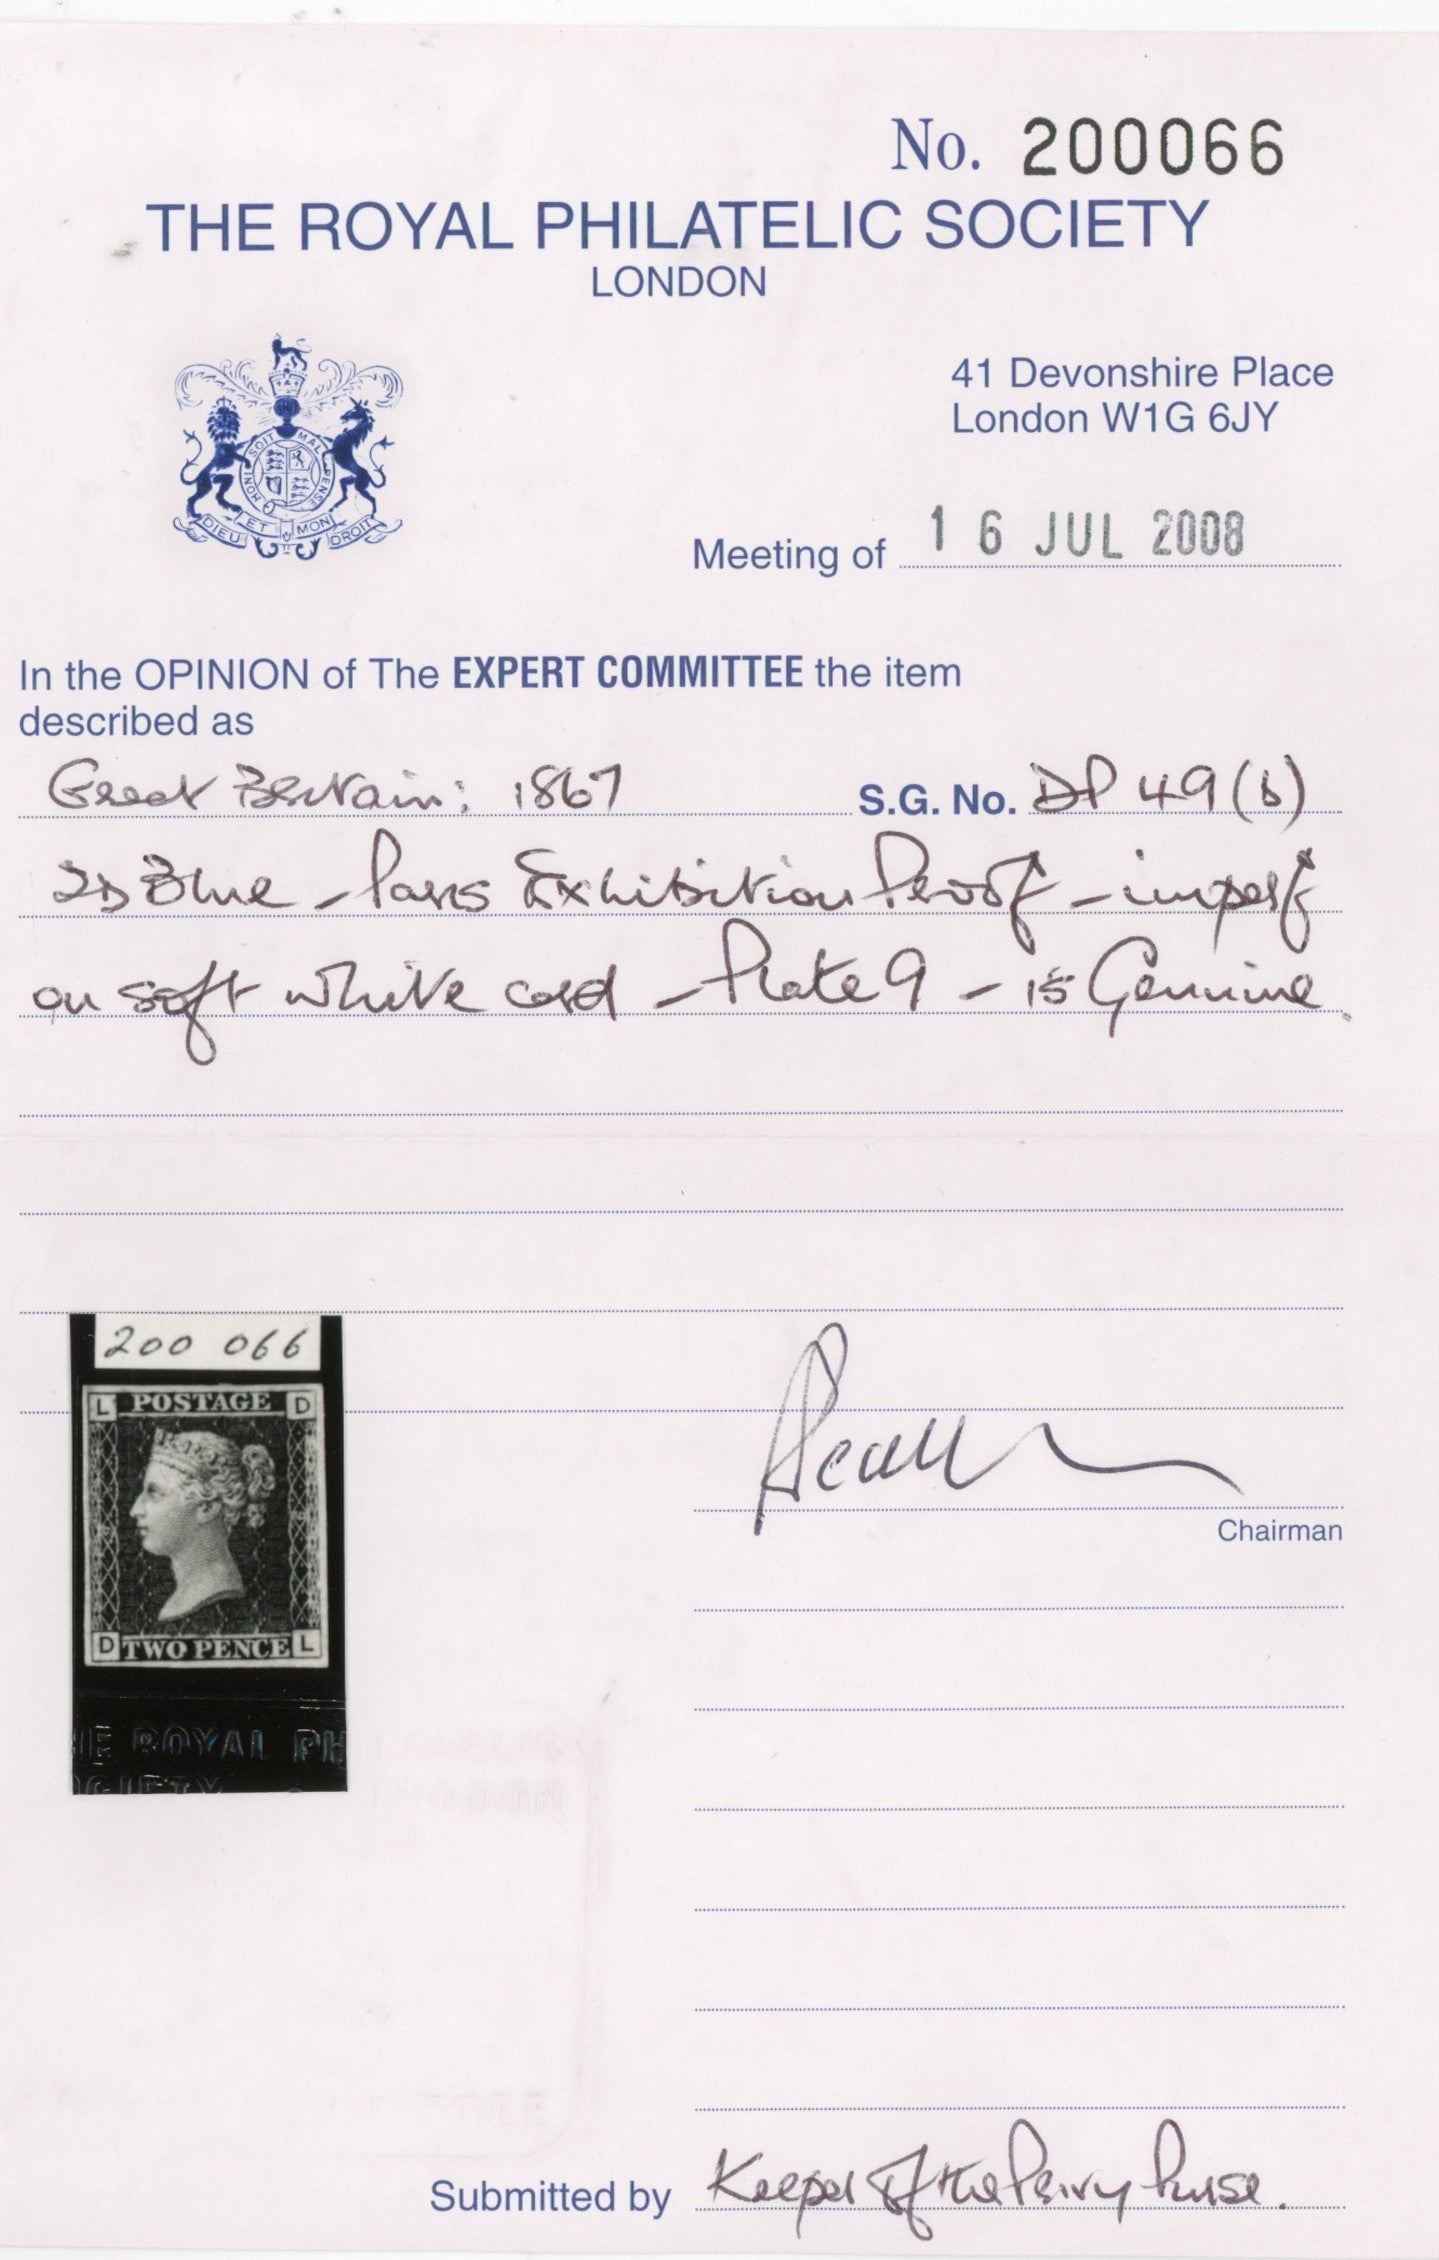 No. 200066
THE ROYAL PHILATELIC SOCIETY
LONDON
41 Devonshire Place
London W1G 6JY
SOIT MAL PENSE HONI
DIEU ET MON DROIT
Meeting of 16 JUL 2008
In the OPINION of The EXPERT COMMITTEE the item
described as
Great Britain: 1867 S.G. No. DP 49(b)
2D Blue – Paris Exhibition Proof – imperf
on soft white card – Plate 9 – is Genuine.
200 066
L POSTAGE D
D TWO PENCE L
HE ROYAL PH
OCIETY
Chairman
Submitted by Keeper of the Privy Purse.